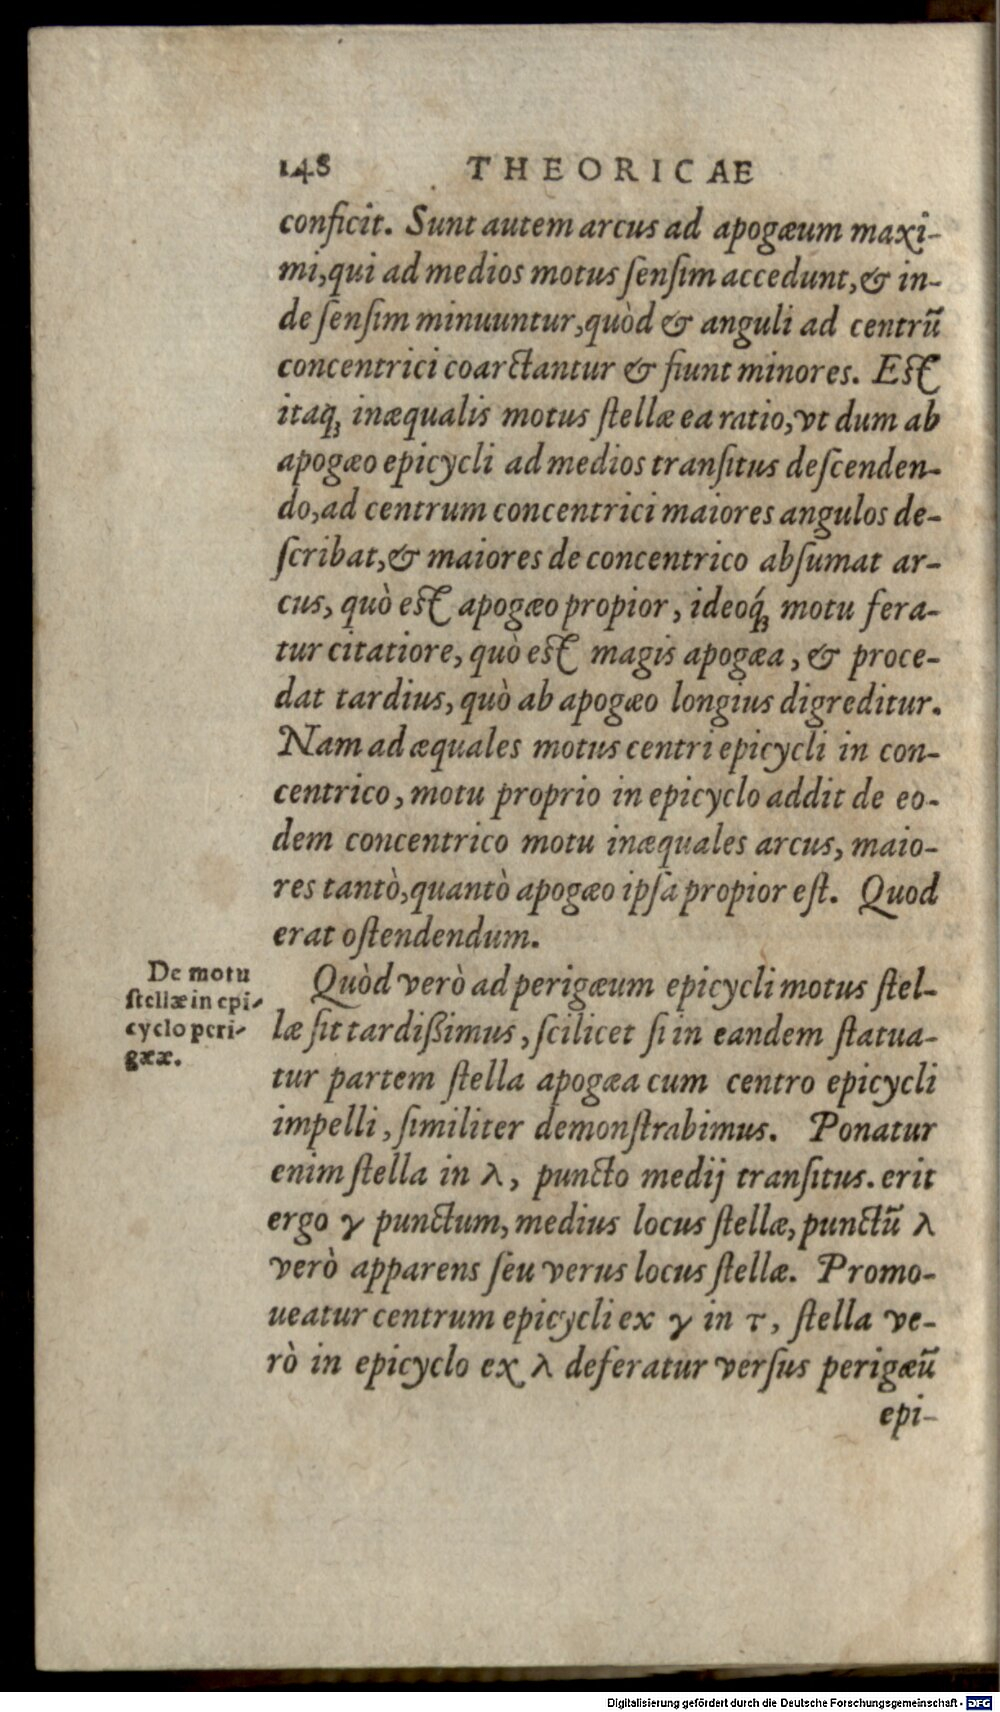 148 THEORICAE
conficit. Sunt autem arcus ad apogæum maxi-
mi, qui ad medios motus ſenſim accedunt, & in-
de ſenſim minuuntur, quòd & anguli ad centrũ
concentrici coarctantur & fiunt minores. Est
itaq; inæqualis motus ſtellæ ea ratio, vt dum ab
apogæo epicycli ad medios tranſitus deſcenden-
do, ad centrum concentrici maiores angulos de-
ſcribat, & maiores de concentrico abſumat ar-
cus, quò est apogæo propior, ideoq́; motu fera-
tur citatiore, quò est magis apogæa, & proce-
dat tardius, quò ab apogæo longius digreditur.
Nam ad æquales motus centri epicycli in con-
centrico, motu proprio in epicyclo addit de eo-
dem concentrico motu inæquales arcus, maio-
res tantò, quantò apogæo ipſa propior eſt. Quod
erat oſtendendum.
De motu
ſtellæ in epi-
cyclo peri-
gææ.
Quòd verò ad perigæum epicycli motus ſtel-
læ ſit tardißimus, ſcilicet ſi in eandem ſtatua-
tur partem ſtella apogæa cum centro epicycli
impelli, ſimiliter demonſtrabimus. Ponatur
enim ſtella in λ, puncto medij tranſitus. erit
ergo γ punctum, medius locus ſtellæ, punctũ λ
verò apparens ſeu verus locus ſtellæ. Promo-
ueatur centrum epicycli ex γ in τ, ſtella ve-
rò in epicyclo ex λ deferatur verſus perigæũ
epi-
Digitalisierung gefördert durch die Deutsche Forschungsgemeinschaft - DFG